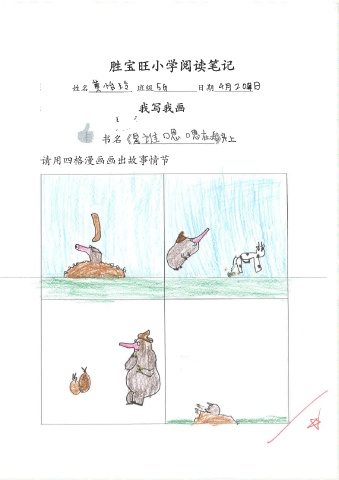 胜宝旺小学阅读笔记
姓名 黄 班级 5G 日期 4月20日
我写我画
书名 是谁嗯嗯在我头上
请用四格漫画画出故事情节